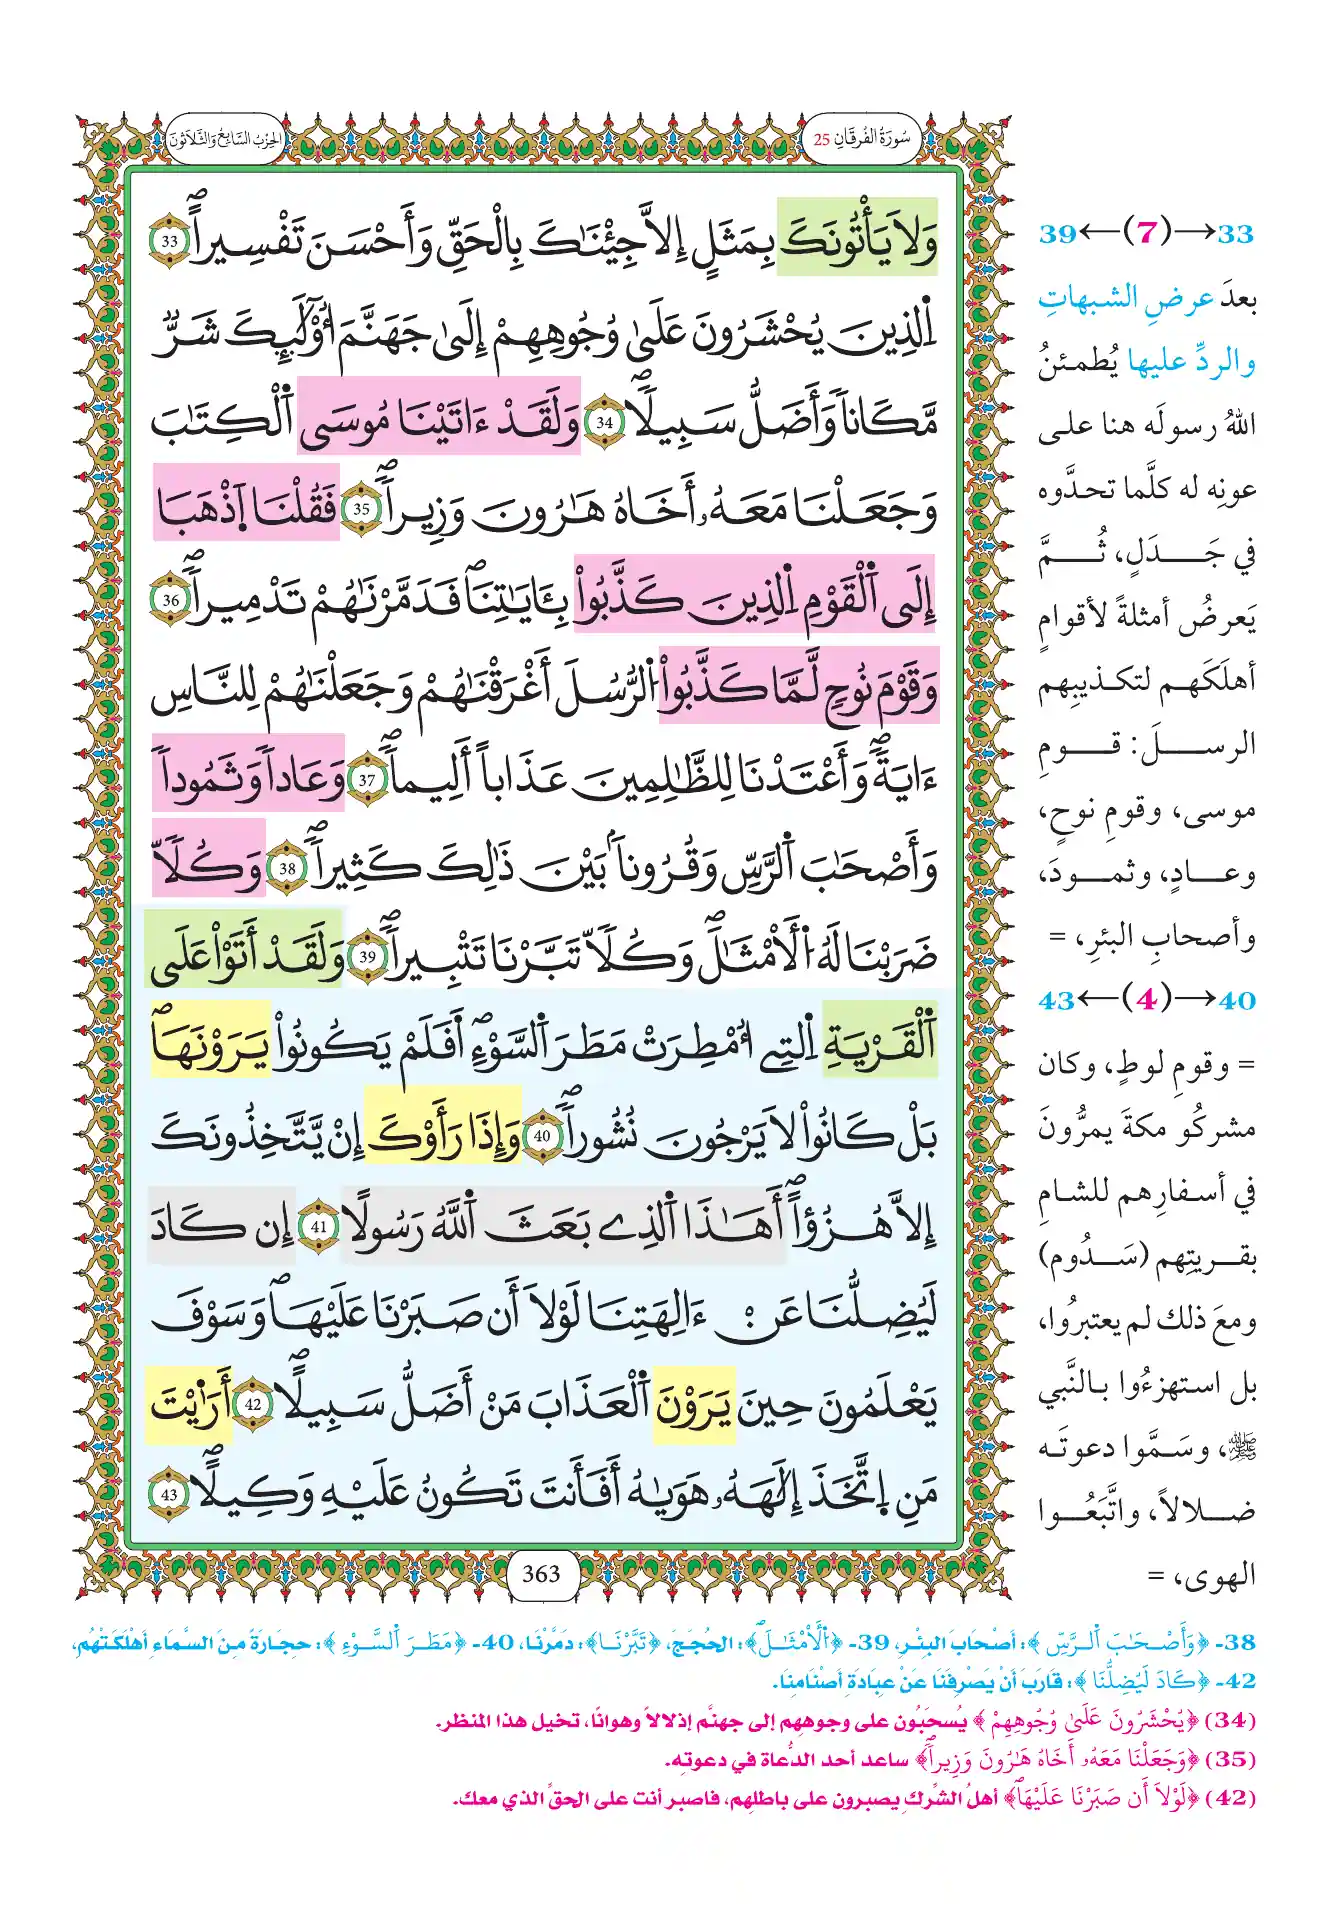 سُورَةُ الفُرْقَانِ 25
الحِزْبُ السَّابِعُ وَالثَّلَاثُونَ
وَلَا يَأْتُونَكَ بِمَثَلٍ إِلَّا جِئْنَٰكَ بِالْحَقِّ وَأَحْسَنَ تَفْسِيراًۖ 33
اِ۬لذِينَ يُحْشَرُونَ عَلَىٰ وُجُوهِهِمْ إِلَىٰ جَهَنَّمَ أُوْلَٰٓئِكَ شَرّٞ
مَّكَاناٗ وَأَضَلُّ سَبِيلاٗۖ 34 وَلَقَدْ ءَاتَيْنَا مُوسَى اَ۬لْكِتَٰبَ
وَجَعَلْنَا مَعَهُۥٓ أَخَاهُ هَٰرُونَ وَزِيراٗۖ 35 فَقُلْنَا اَ۪ذْهَبَا
إِلَى اَ۬لْقَوْمِ اِ۬لذِينَ كَذَّبُواْ بِـَٔايَٰتِنَاۖ فَدَمَّرْنَٰهُمْ تَدْمِيراٗۖ 36
وَقَوْمَ نُوحٍ لَّمَّا كَذَّبُواْ اُ۬لرُّسُلَ أَغْرَقْنَٰهُمْ وَجَعَلْنَٰهُمْ لِلنَّاسِ
ءَايَةٗۖ وَأَعْتَدْنَا لِلظَّٰلِمِينَ عَذَاباً أَلِيماٗۖ 37 وَعَاداٗ وَثَمُوداٗ
وَأَصْحَٰبَ اَ۬لرَّسِّ وَقُرُوناَۢ بَيْنَ ذَٰلِكَ كَثِيراٗۖ 38 وَكُلّاٗ
ضَرَبْنَا لَهُ اُ۬لْأَمْثَٰلَۖ وَكُلّاٗ تَبَّرْنَا تَتْبِيراٗۖ 39 وَلَقَدْ أَتَوْاْ عَلَى
اَ۬لْقَرْيَةِ اِ۬لتِےٓ أُمْطِرَتْ مَطَرَ اَ۬لسَّوْءِۖ أَفَلَمْ يَكُونُواْ يَرَوْنَهَاۖ
بَلْ كَانُواْ لَا يَرْجُونَ نُشُوراٗۖ 40 وَإِذَا رَأَوْكَ إِنْ يَّتَّخِذُونَكَ
إِلَّا هُزُؤاًۖ أَهَٰذَا اَ۬لذِے بَعَثَ اَ۬للَّهُ رَسُولاً 41 إِن كَادَ
لَيُضِلُّنَا عَنْ ءَالِهَتِنَا لَوْلَآ أَن صَبَرْنَا عَلَيْهَاۖ وَسَوْفَ
يَعْلَمُونَ حِينَ يَرَوْنَ اَ۬لْعَذَابَ مَنْ أَضَلُّ سَبِيلاًۖ 42 أَرَٰٓيْتَ
مَنِ اِ۪تَّخَذَ إِلَٰهَهُۥ هَوَىٰهُ أَفَأَنتَ تَكُونُ عَلَيْهِ وَكِيلاًۖ 43
363
33→(7)←39
بعدَ عرضِ الشبهاتِ
والردِّ عليها يُطمئنُ
اللهُ رسولَه هنا على
عونِه له كلَّما تحدَّوه
في جَدَلٍ، ثُمَّ
يَعرضُ أمثلةً لأقوامٍ
أهلَكَهم لتكذيبِهم
الرسلَ: قومِ
موسى، وقومِ نوحٍ،
وعادٍ، وثمودَ،
وأصحابِ البئرِ، =
40→(4)←43
= وقومِ لوطٍ، وكان
مشركُو مكةَ يمرُّونَ
في أسفارِهم للشامِ
بقريتِهم (سَدُوم)
ومعَ ذلك لم يعتبرُوا،
بل استهزءُوا بالنَّبي
ﷺ، وسَمَّوا دعوتَه
ضلالاً، واتَّبَعُوا
الهوى، =
38- ﴿وَأَصْحَٰبَ اَ۬لرَّسِّ﴾: أَصْحَابَ البِئْرِ، 39- ﴿اُ۬لْأَمْثَٰلَۖ﴾: الحُجَجَ، ﴿تَبَّرْنَا﴾: دَمَّرْنَا، 40- ﴿مَطَرَ اَ۬لسَّوْءِ﴾: حِجَارَةً مِنَ السَّمَاءِ أَهْلَكَتْهُم،
42- ﴿كَادَ لَيُضِلُّنَا﴾: قَارَبَ أَنْ يَصْرِفَنَا عَنْ عِبَادَةِ أَصْنَامِنَا.
(34) ﴿يُحْشَرُونَ عَلَىٰ وُجُوهِهِمْ﴾ يُسحَبُون على وجوهِهم إلى جهنَّم إذلالاً وهوانًا، تخيل هذا المنظر.
(35) ﴿وَجَعَلْنَا مَعَهُۥٓ أَخَاهُ هَٰرُونَ وَزِيراٗۖ﴾ ساعد أحد الدُّعاة في دعوتِه.
(42) ﴿لَوْلَآ أَن صَبَرْنَا عَلَيْهَاۖ﴾ أهلُ الشِّركِ يصبرون على باطلِهم، فاصبر أنت على الحقِّ الذي معك.